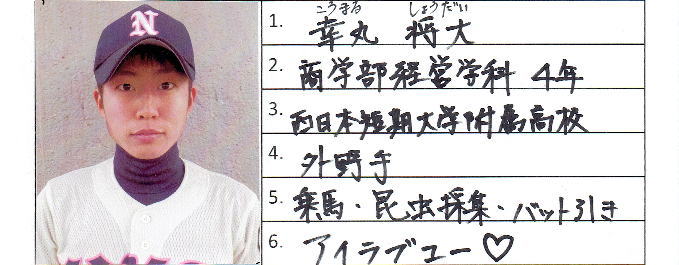 N
こうまる しょうだい
1. 幸丸 将大
2. 商学部経営学科 4年
3. 西日本短期大学附属高校
4. 外野手
5. 乗馬・昆虫採集・バット引き
6. アイラブユー♡